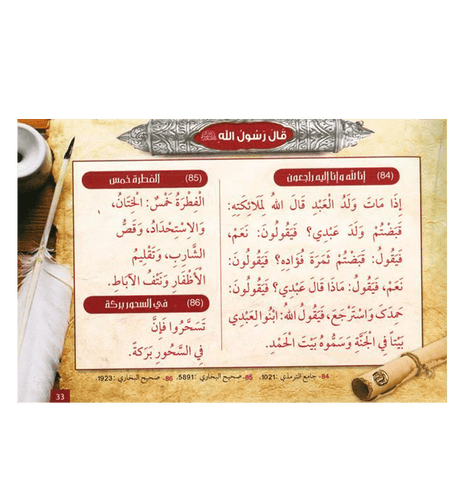 قَالَ رَسُولُ اللَّه ﷺ
(84) إنا لله وإنا إليه راجعون
إِذَا مَاتَ وَلَدُ الْعَبْدِ قَالَ اللهُ لِمَلَائِكَتِهِ:
قَبَضْتُمْ وَلَدَ عَبْدِي؟ فَيَقُولُونَ: نَعَمْ،
فَيَقُولُ: قَبَضْتُمْ ثَمَرَةَ فُؤَادِهِ؟ فَيَقُولُونَ:
نَعَمْ، فَيَقُولُ: مَاذَا قَالَ عَبْدِي؟ فَيَقُولُونَ:
حَمِدَكَ وَاسْتَرْجَعَ، فَيَقُولُ اللهُ: ابْنُوا لِعَبْدِي
بَيْتًا فِي الْجَنَّةِ وَسَمُّوهُ بَيْتَ الْحَمْدِ.
(85) الفطرة خمس
الْفِطْرَةُ خَمْسٌ: الْخِتَانُ،
وَالِاسْتِحْدَادُ، وَقَصُّ
الشَّارِبِ، وَتَقْلِيمُ
الْأَظْفَارِ وَنَتْفُ الْآبَاطِ.
(86) في السحور بركة
تَسَحَّرُوا فَإِنَّ
فِي السَّحُورِ بَرَكَةً.
84- جامع الترمذي :1021، 85- صحيح البخاري :5891، 86- صحيح البخاري :1923.
33